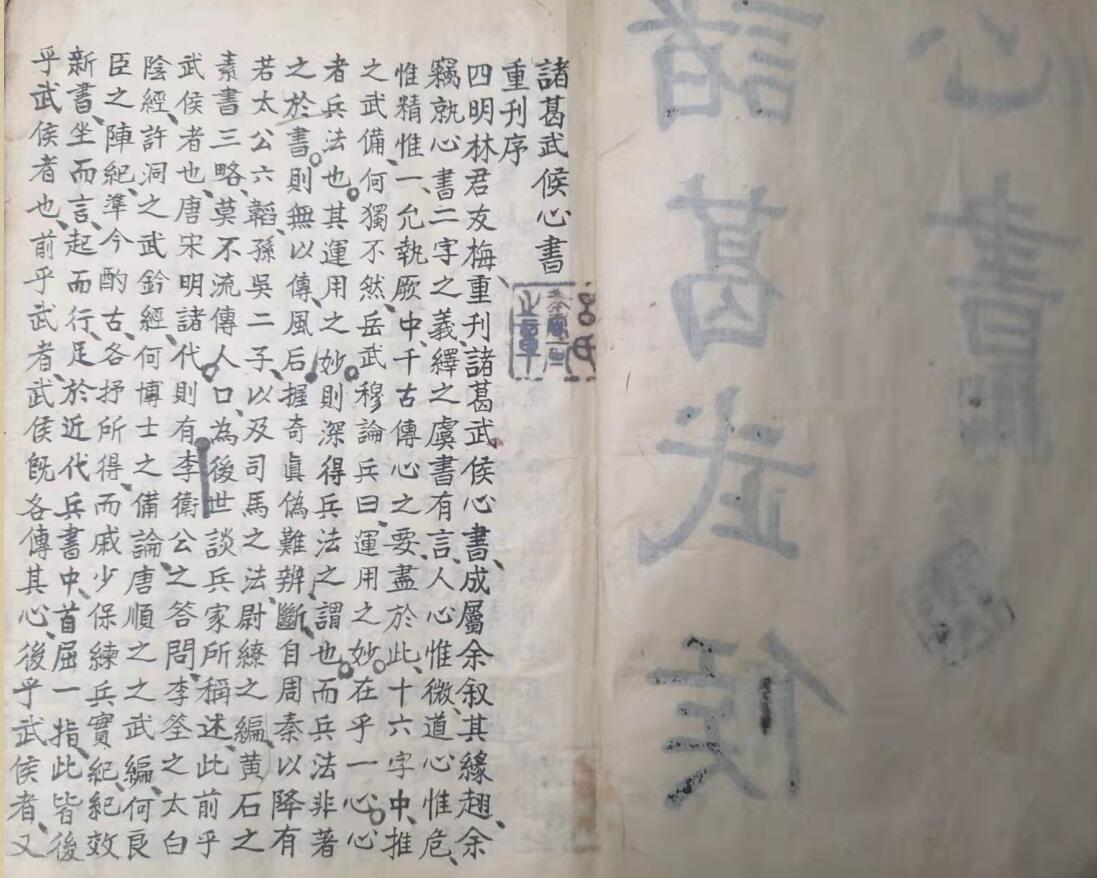 心書
諸葛武候
諸葛武候心書
重刊序
四明林君友梅、重刊諸葛武侯心書、成屬余叙其緣、余
竊就心書二字之義繹之虞書有言、人心惟微、道心惟危、
惟精惟一、允執厥中、千古傳心之要盡於此、十六字中、推
之武備、何獨不然、岳武穆論兵曰、運用之妙。在乎一心。心
者兵法也。其運用之妙則深得兵法之謂也。而兵法非著
之於書。則無以傳、風后握奇真偽難辨、斷自周秦以降、有
若太公六韜、孫吳二子、以及司馬之法、尉繚之編、黄石之
素書三略、莫不流傳人口、為後世談兵家所稱述、此前乎
武侯者也、唐宋明諸代。則有李衛公之答問、李筌之太白
陰經、許洞之武鈐經、何博士之備論、唐順之之武編、何良
臣之陣紀、準今酌古、各抒所得、而戚少保練兵實紀、紀效
新書、坐而言、起而行、足於近代兵書中、首屈一指、此皆後
乎武侯者也、前乎武者、武侯既各傳其心、後乎武侯者、又